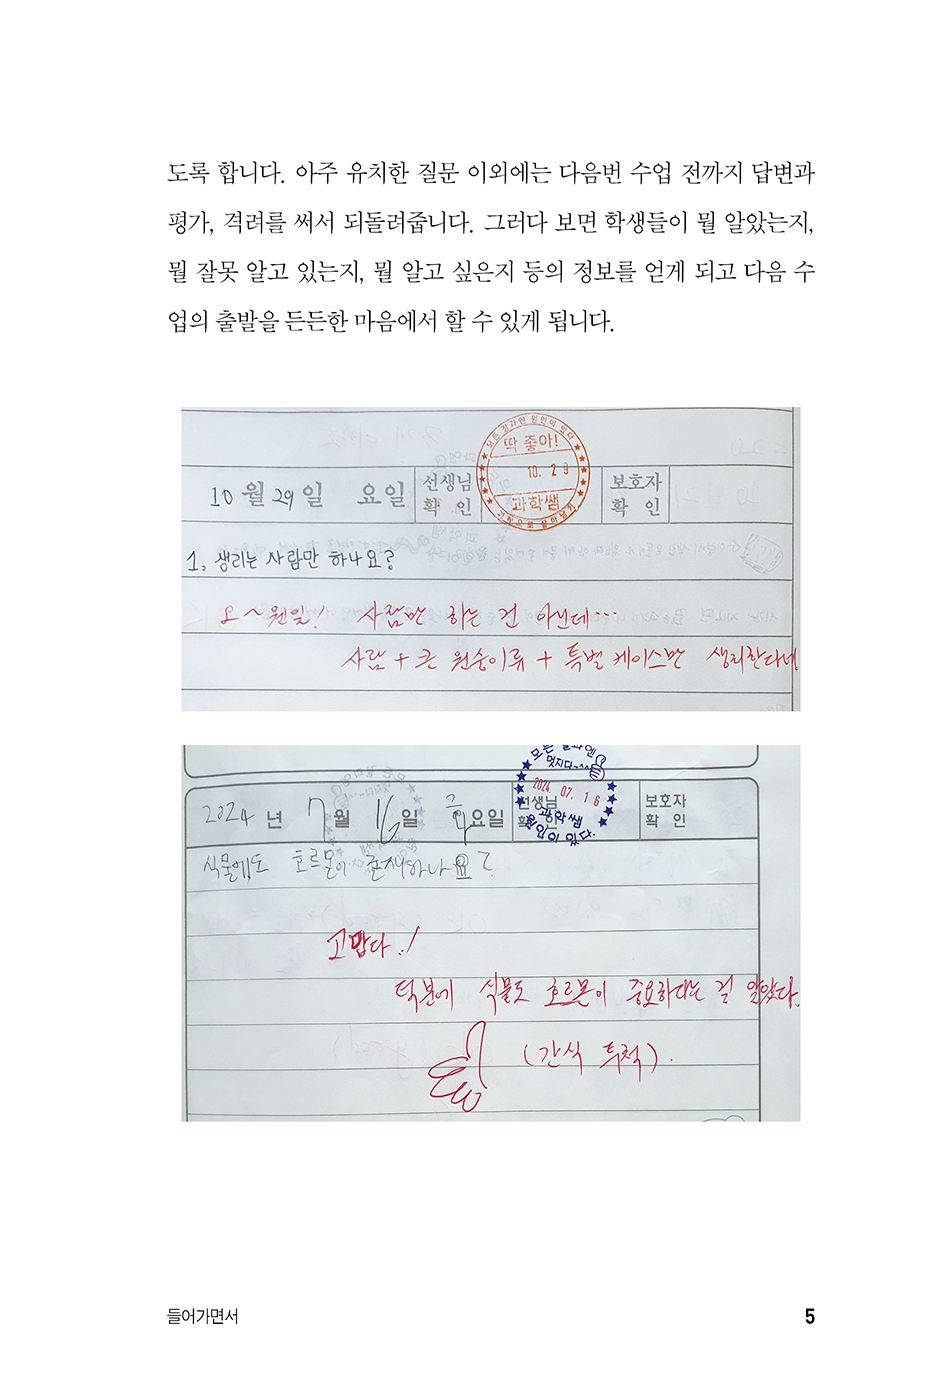 도록 합니다. 아주 유치한 질문 이외에는 다음번 수업 전까지 답변과
평가, 격려를 써서 되돌려줍니다. 그러다 보면 학생들이 뭘 알았는지,
뭘 잘못 알고 있는지, 뭘 알고 싶은지 등의 정보를 얻게 되고 다음 수
업의 출발을 든든한 마음에서 할 수 있게 됩니다.
모든 결과엔 원인이 있다
딱 좋아!
10. 2 9
과학쌤
과학으로 살아남기
10 월 29 일 요일
선생님
확 인
보호자
확 인
1. 생리는 사람만 하나요?
오~웬일! 사람만 하는 건 아닌데…
사람 + 큰 원숭이류 + 특별 케이스만 생리한다네!
모든 결과엔
멋지다~^^
2024. 07. 1 6
과학쌤
원인이 있다.
2024 년 7 월 16 일 화 요일
선생님
확 인
보호자
확 인
식물에도 호르몬이 존재하나요?
고맙다!
덕분에 식물도 호르몬이 중요하다는 걸 알았다.
(간식 투척).
들어가면서
5